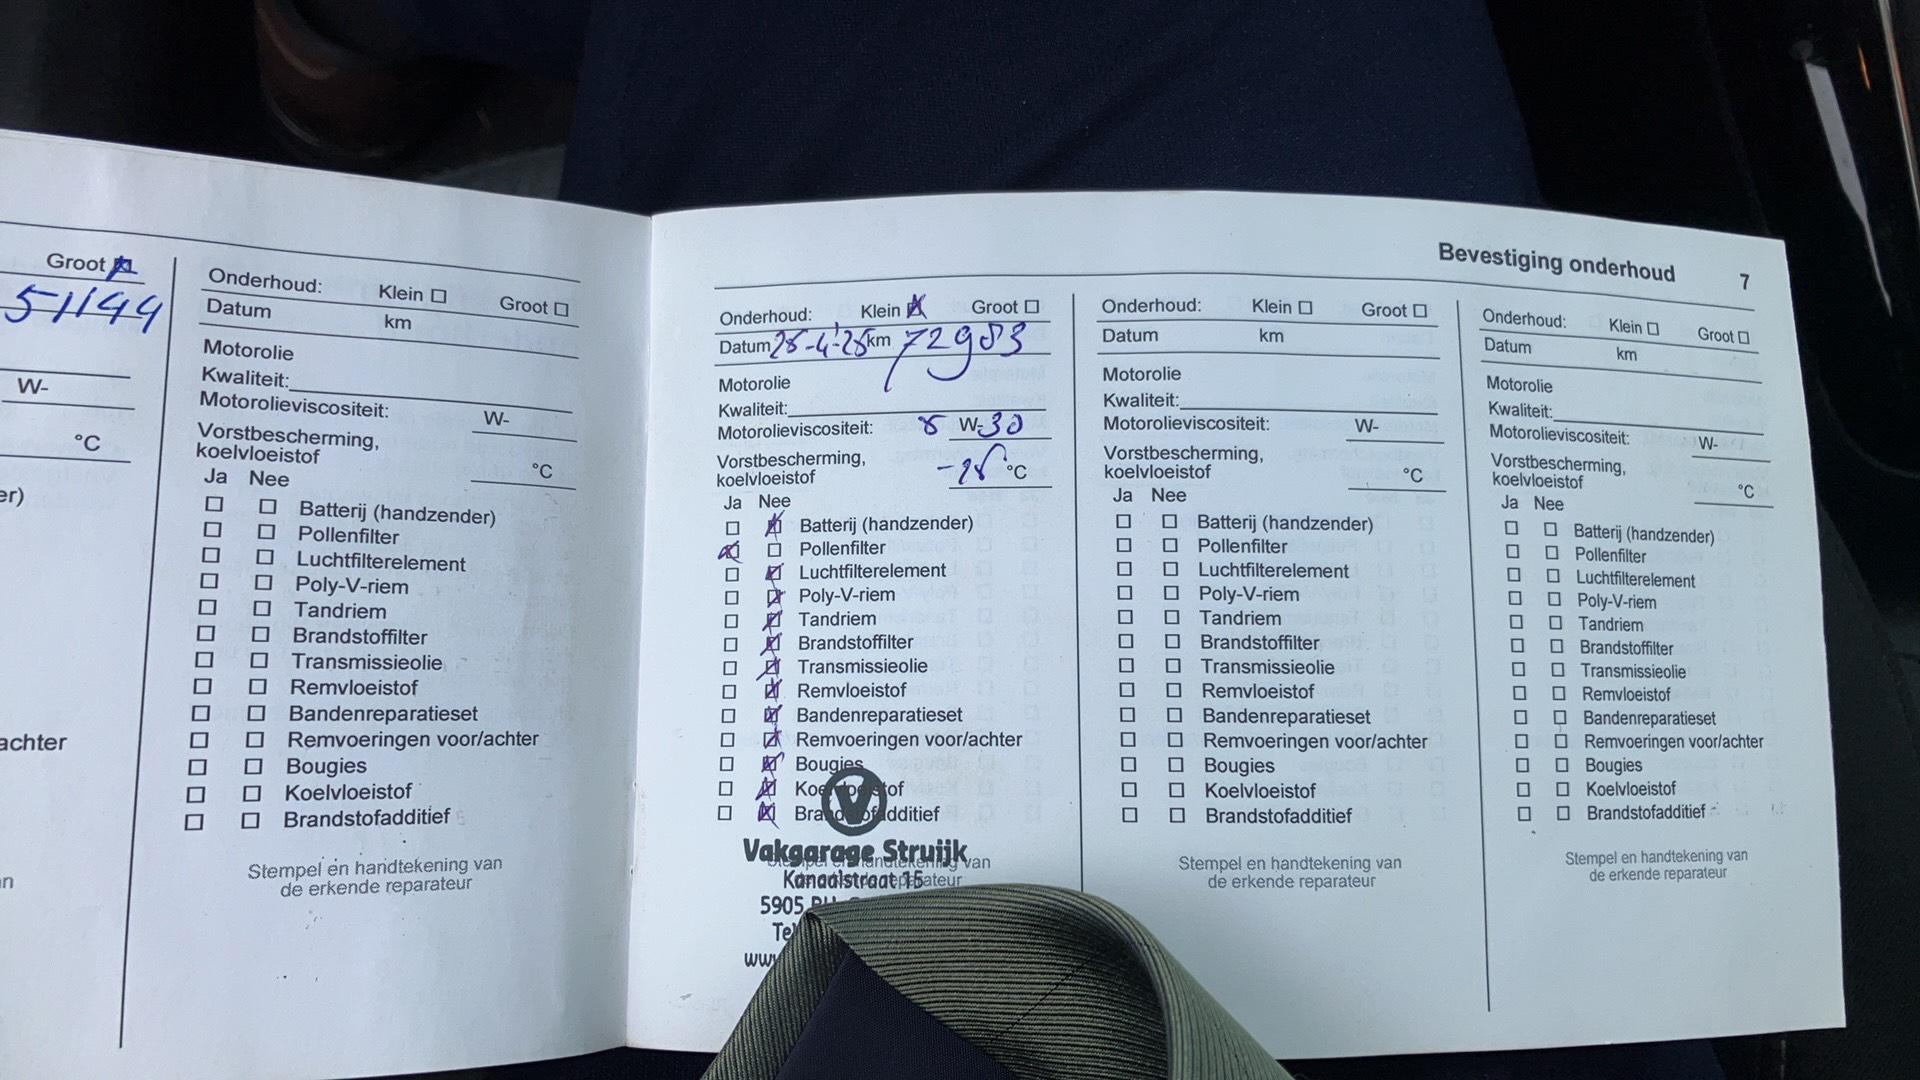 Groot
51144
W-
°C
er)
achter
n
Onderhoud: Klein Groot
Datum km
Motorolie
Kwaliteit:
Motorolieviscositeit: W-
Vorstbescherming,
koelvloeistof °C
Ja Nee
Batterij (handzender)
Pollenfilter
Luchtfilterelement
Poly-V-riem
Tandriem
Brandstoffilter
Transmissieolie
Remvloeistof
Bandenreparatieset
Remvoeringen voor/achter
Bougies
Koelvloeistof
Brandstofadditief
Stempel en handtekening van
de erkende reparateur
Bevestiging onderhoud 7
Onderhoud: Klein Groot
Datum 25-4-25 km 72983
Motorolie
Kwaliteit:
Motorolieviscositeit: 5 W-30
Vorstbescherming,
koelvloeistof °C
Ja Nee
Batterij (handzender)
Pollenfilter
Luchtfilterelement
Poly-V-riem
Tandriem
Brandstoffilter
Transmissieolie
Remvloeistof
Bandenreparatieset
Remvoeringen voor/achter
Bougies
Koelvloeistof
Brandstofadditief
Stempel en handtekening van
de erkende reparateur
Vakgarage Struijk
Kanaalstraat 15
5905
Tel
www
Onderhoud: Klein Groot
Datum km
Motorolie
Kwaliteit:
Motorolieviscositeit: W-
Vorstbescherming,
koelvloeistof °C
Ja Nee
Batterij (handzender)
Pollenfilter
Luchtfilterelement
Poly-V-riem
Tandriem
Brandstoffilter
Transmissieolie
Remvloeistof
Bandenreparatieset
Remvoeringen voor/achter
Bougies
Koelvloeistof
Brandstofadditief
Stempel en handtekening van
de erkende reparateur
Onderhoud: Klein Groot
Datum km
Motorolie
Kwaliteit:
Motorolieviscositeit: W-
Vorstbescherming,
koelvloeistof °C
Ja Nee
Batterij (handzender)
Pollenfilter
Luchtfilterelement
Poly-V-riem
Tandriem
Brandstoffilter
Transmissieolie
Remvloeistof
Bandenreparatieset
Remvoeringen voor/achter
Bougies
Koelvloeistof
Brandstofadditief
Stempel en handtekening van
de erkende reparateur